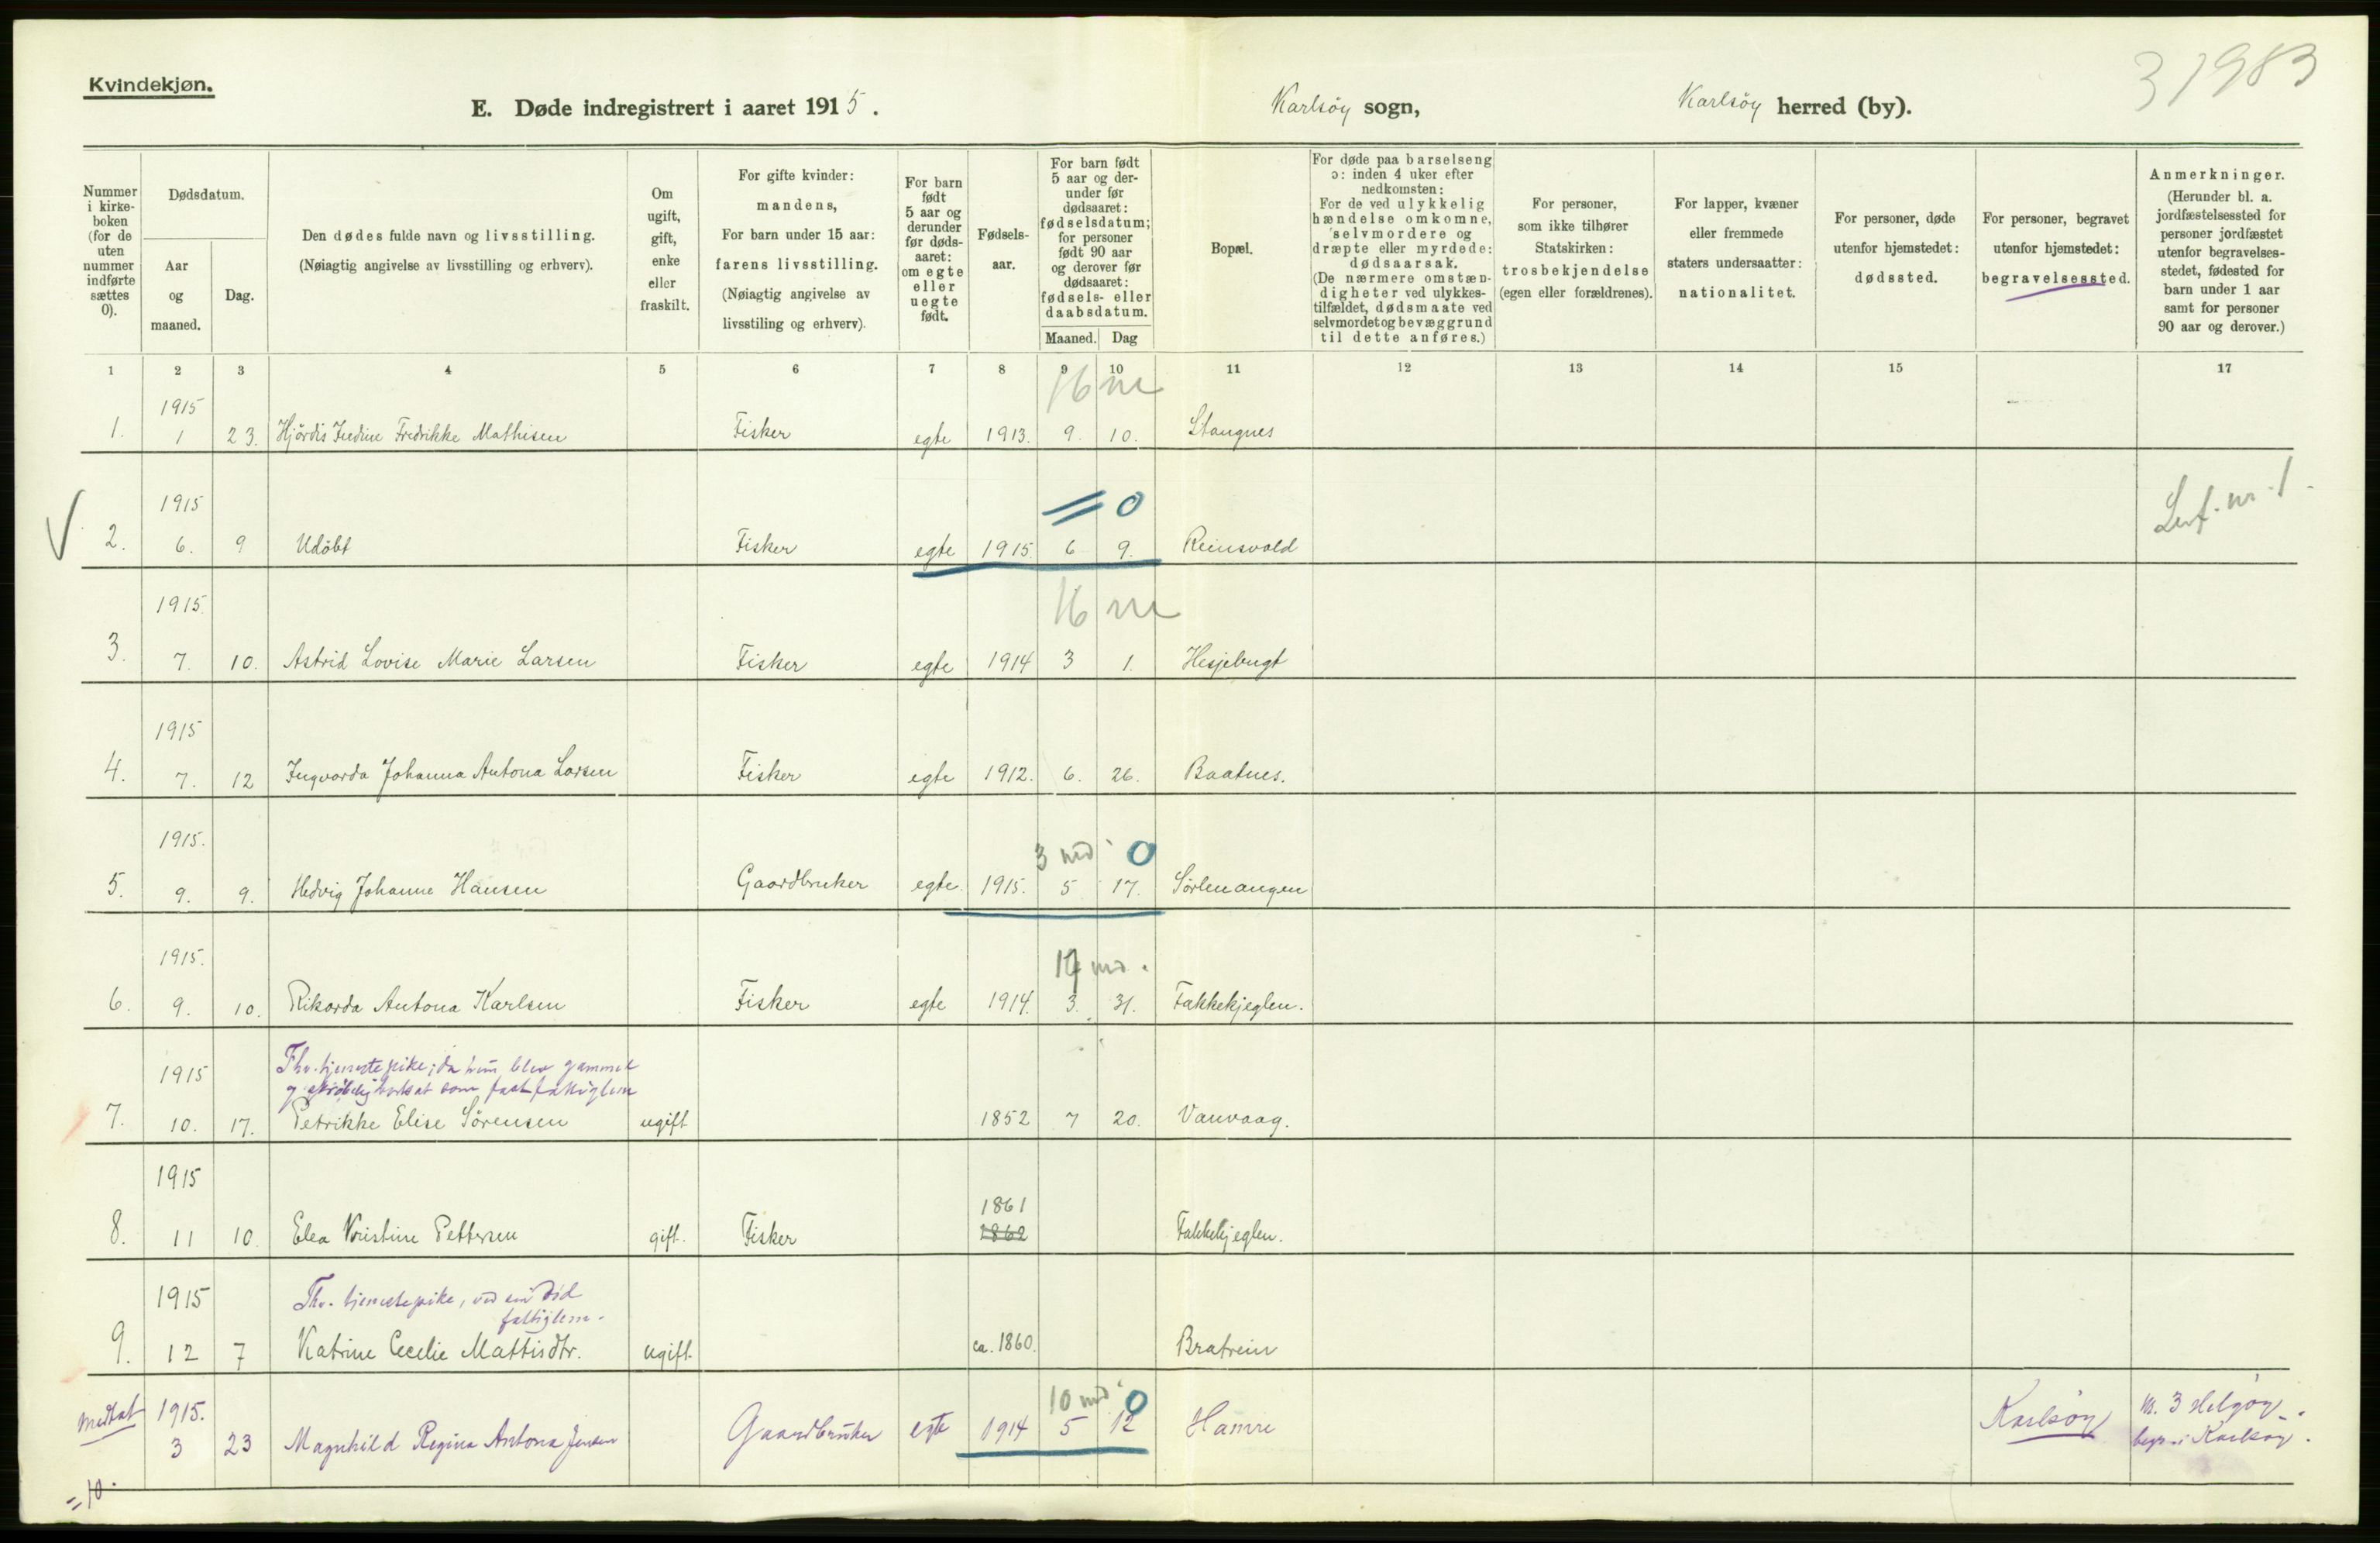 Kvindekjøn.
31983
E. Døde indregistrert i aaret 1915.
Karlsöy sogn, Karlsöy herred (by).
Nummer i kirke-boken (for de uten nummer indførte sættes 0).
Dødsdatum.
Aar og maaned.
Dag.
Den dødes fulde navn og livsstilling.
(Nøiagtig angivelse av livsstilling og erhverv).
Om ugift, gift, enke eller fraskilt.
For gifte kvinder: mandens,
For barn under 15 aar: farens livsstilling.
(Nøiagtig angivelse av livsstiling og erhverv).
For barn født 5 aar og derunder før døds-aaret: om egte eller uegte født.
Fødsels-aar.
For barn født 5 aar og der-under før dødsaaret: fødselsdatum; for personer født 90 aar og derover før dødsaaret: fødsels- eller daabsdatum.
Maaned. Dag
Bopæl.
For døde paa barselseng ɔ: inden 4 uker efter nedkomsten:
For de ved ulykkelig hændelse omkomne, selvmordere og dræpte eller myrdede: dødsaarsak.
(De nærmere omstæn-digheter ved ulykkes-tilfældet, dødsmaate ved selvmordet og bevæggrund til dette anføres.)
For personer, som ikke tilhører Statskirken: trosbekjendelse (egen eller forældrenes).
For lapper, kvæner eller fremmede staters undersaatter: nationalitet.
For personer, døde utenfor hjemstedet: dødssted.
For personer, begravet utenfor hjemstedet: begravelsessted.
Anmerkninger.
(Herunder bl. a. jordfæstelsessted for personer jordfæstet utenfor begravelses-stedet, fødested for barn under 1 aar samt for personer 90 aar og derover.)
1 2 3 4 5 6 7 8 9 10 11 12 13 14 15 17
1915 16 m
1. 1 23. Hjördis Indine Fredrikke Mathisen Fisker egte 1913. 9. 10. Stangnes
1915 0
2. 6. 9 Udöbt Fisker egte 1915. 6 9. Reinsvold nr. 1
1915. 16 m
3. 7. 10. Astrid Lovise Marie Larsen Fisker egte 1914 3 1. Hesjebugt
1915
4. 7. 12 Ingvorda Johanna Antona Larsen Fisker egte 1912. 6. 26. Baatnes.
1915. 3 md 0
5. 9. 9. Hedvig Johanne Hansen Gaardbruker egte 1915. 5 17. Sörlenangen
1915. 17 md.
6. 9. 10. Rikarda Antona Karlsen Fisker egte 1914. 3. 31. Fakkekjeglen.
1915 Fhv. tjenestepike; da hun blev gammel
og skröbelig bortsat som fast fattiglem
7. 10. 17. Petrikke Elise Sörensen ugift 1852 7 20. Vanvaag.
1915
1861
8. 11 10. Elea Kristine Pettersen gift. Fisker 1862 Fakkekjeglen.
1915 Fhv. tjenestepike, ved sin död
fattiglem.
9. 12 7 Katrine Cecelie Mattisdtr. ugift ca. 1860. Bratrein
Medtat 1915. 10 md 0
3 23 Magnhild Regina Antona Jensen Gaardbruker egte 1914 5 12 Hamre Karlsöy nr. 3 Helgöy
begr. i Karlsöy.
= 10.